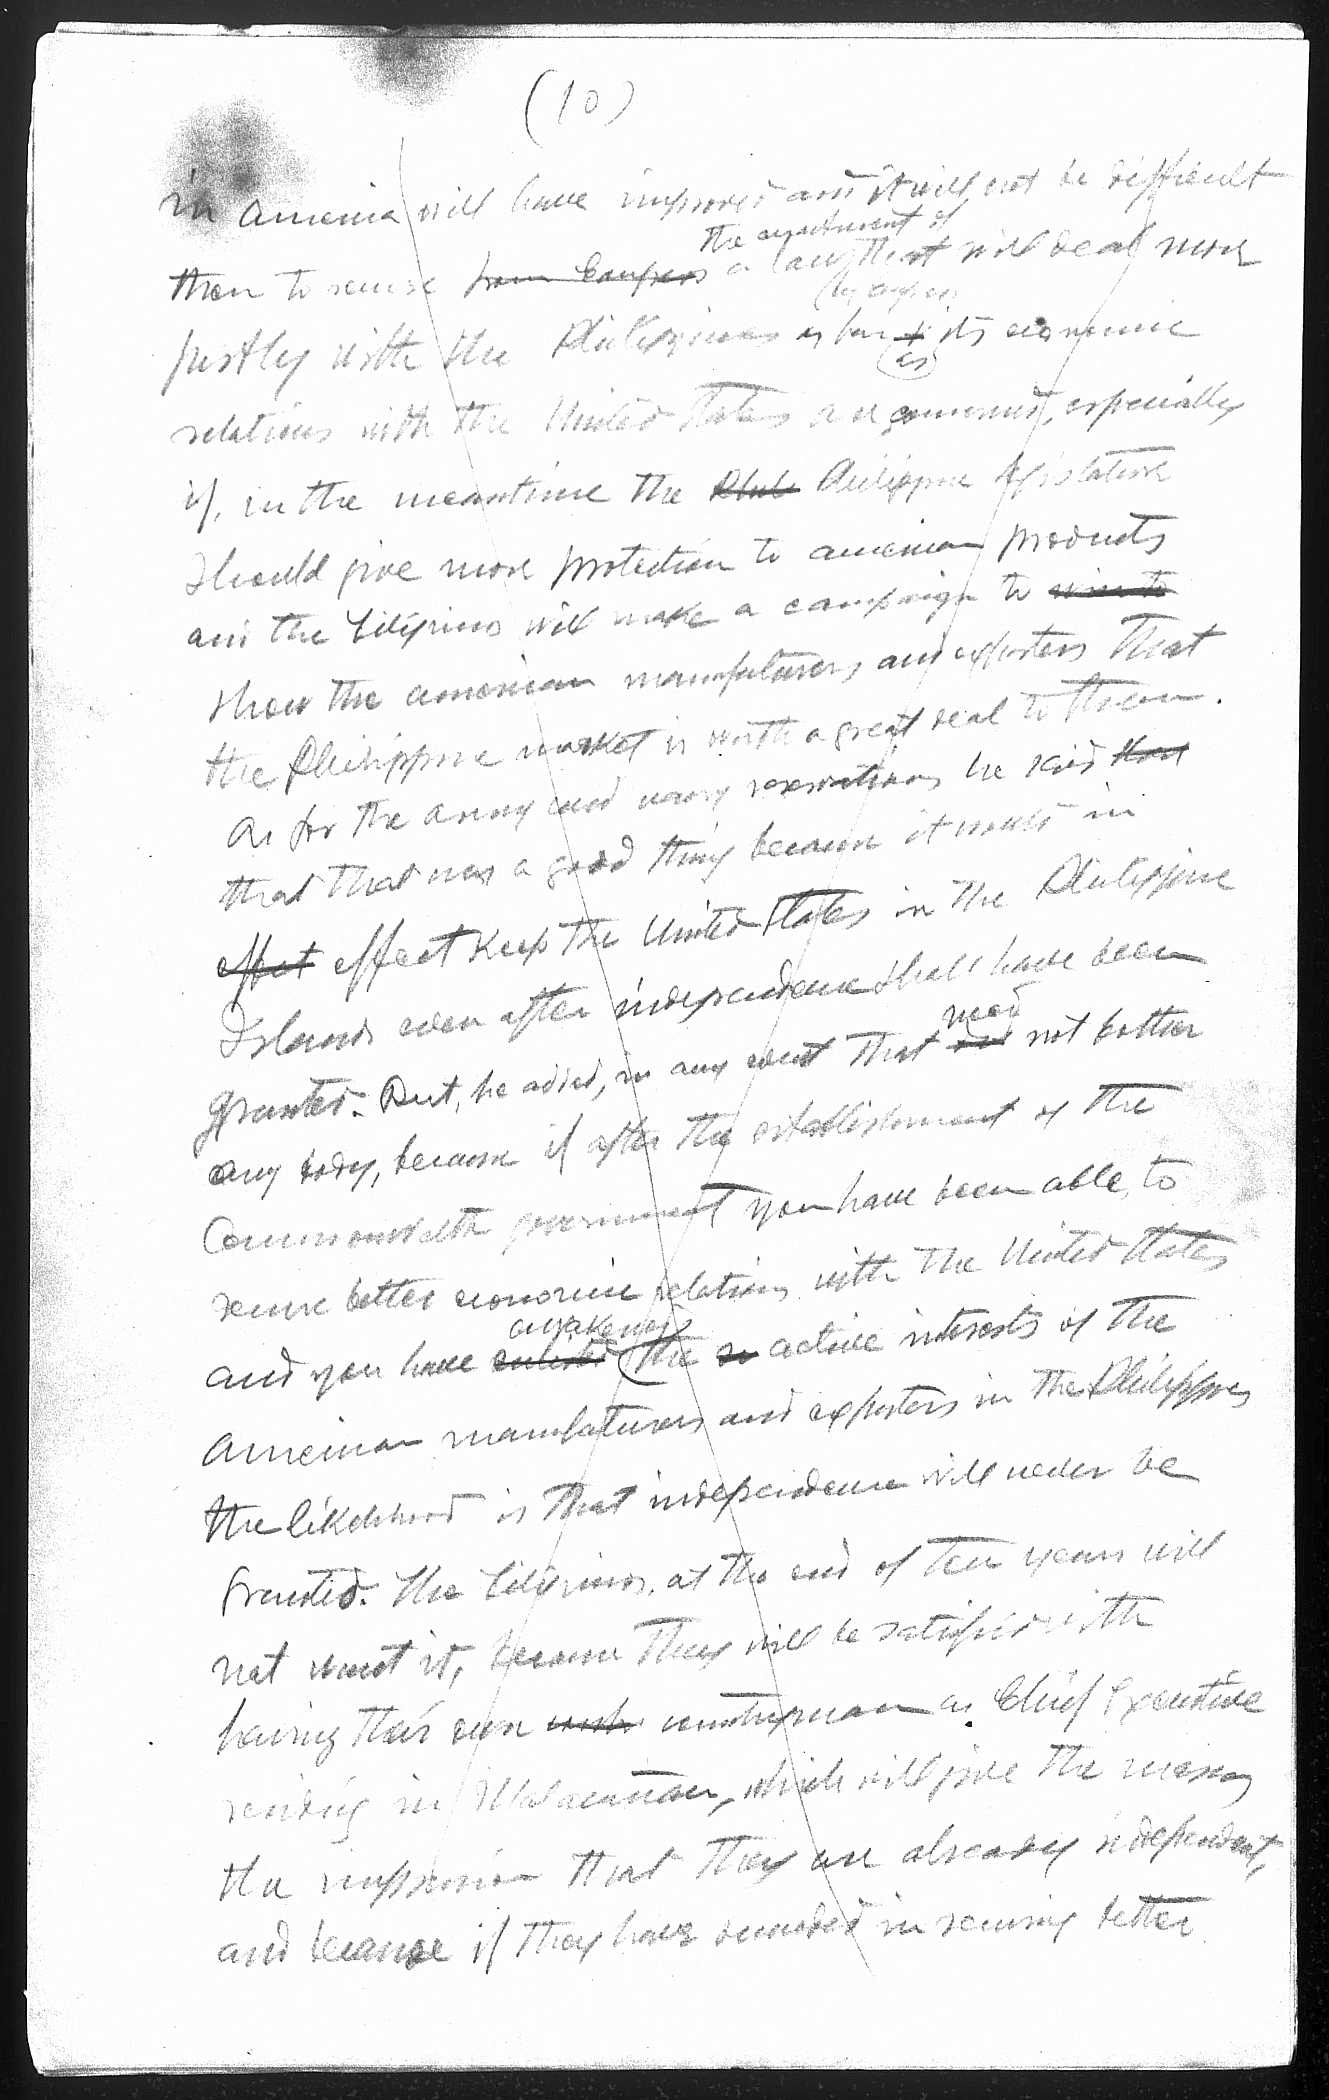 (10)
in America will have improved and it will not be difficult
the enactment of
then to secure from Congress a law that will deal more
by congress
justly with the Philippines as far as its economic
relations with the United States are concerned, especially
if, in the meantime the Phil Philippine legislature
should give more protection to American products
and the Filipinos will make a campaign to
show the American manufacturers and exporters that
the Philippine market is worth a great deal to them.
As for the army and navy reservations he said that
that that was a good thing because it would in
effect effect keep the United States in the Philippine
Islands even after independence shall have been
need
granted. But, he added, in any event that not bother
any body, because if after the establishment of the
Commonwealth government you have been able to
secure better economic relations with the United States
awakened
and you have enlisted the active interests of the
American manufacturers and exporters in the Philippines
the likelihood is that independence will never be
granted. The Filipinos, at the end of ten years will
not want it, because they will be satisfied with
having their own countryman as Chief Executive
residing in Malacañan, which will give the masses
the impression that they are already independent,
and because if they have succeeded in securing better